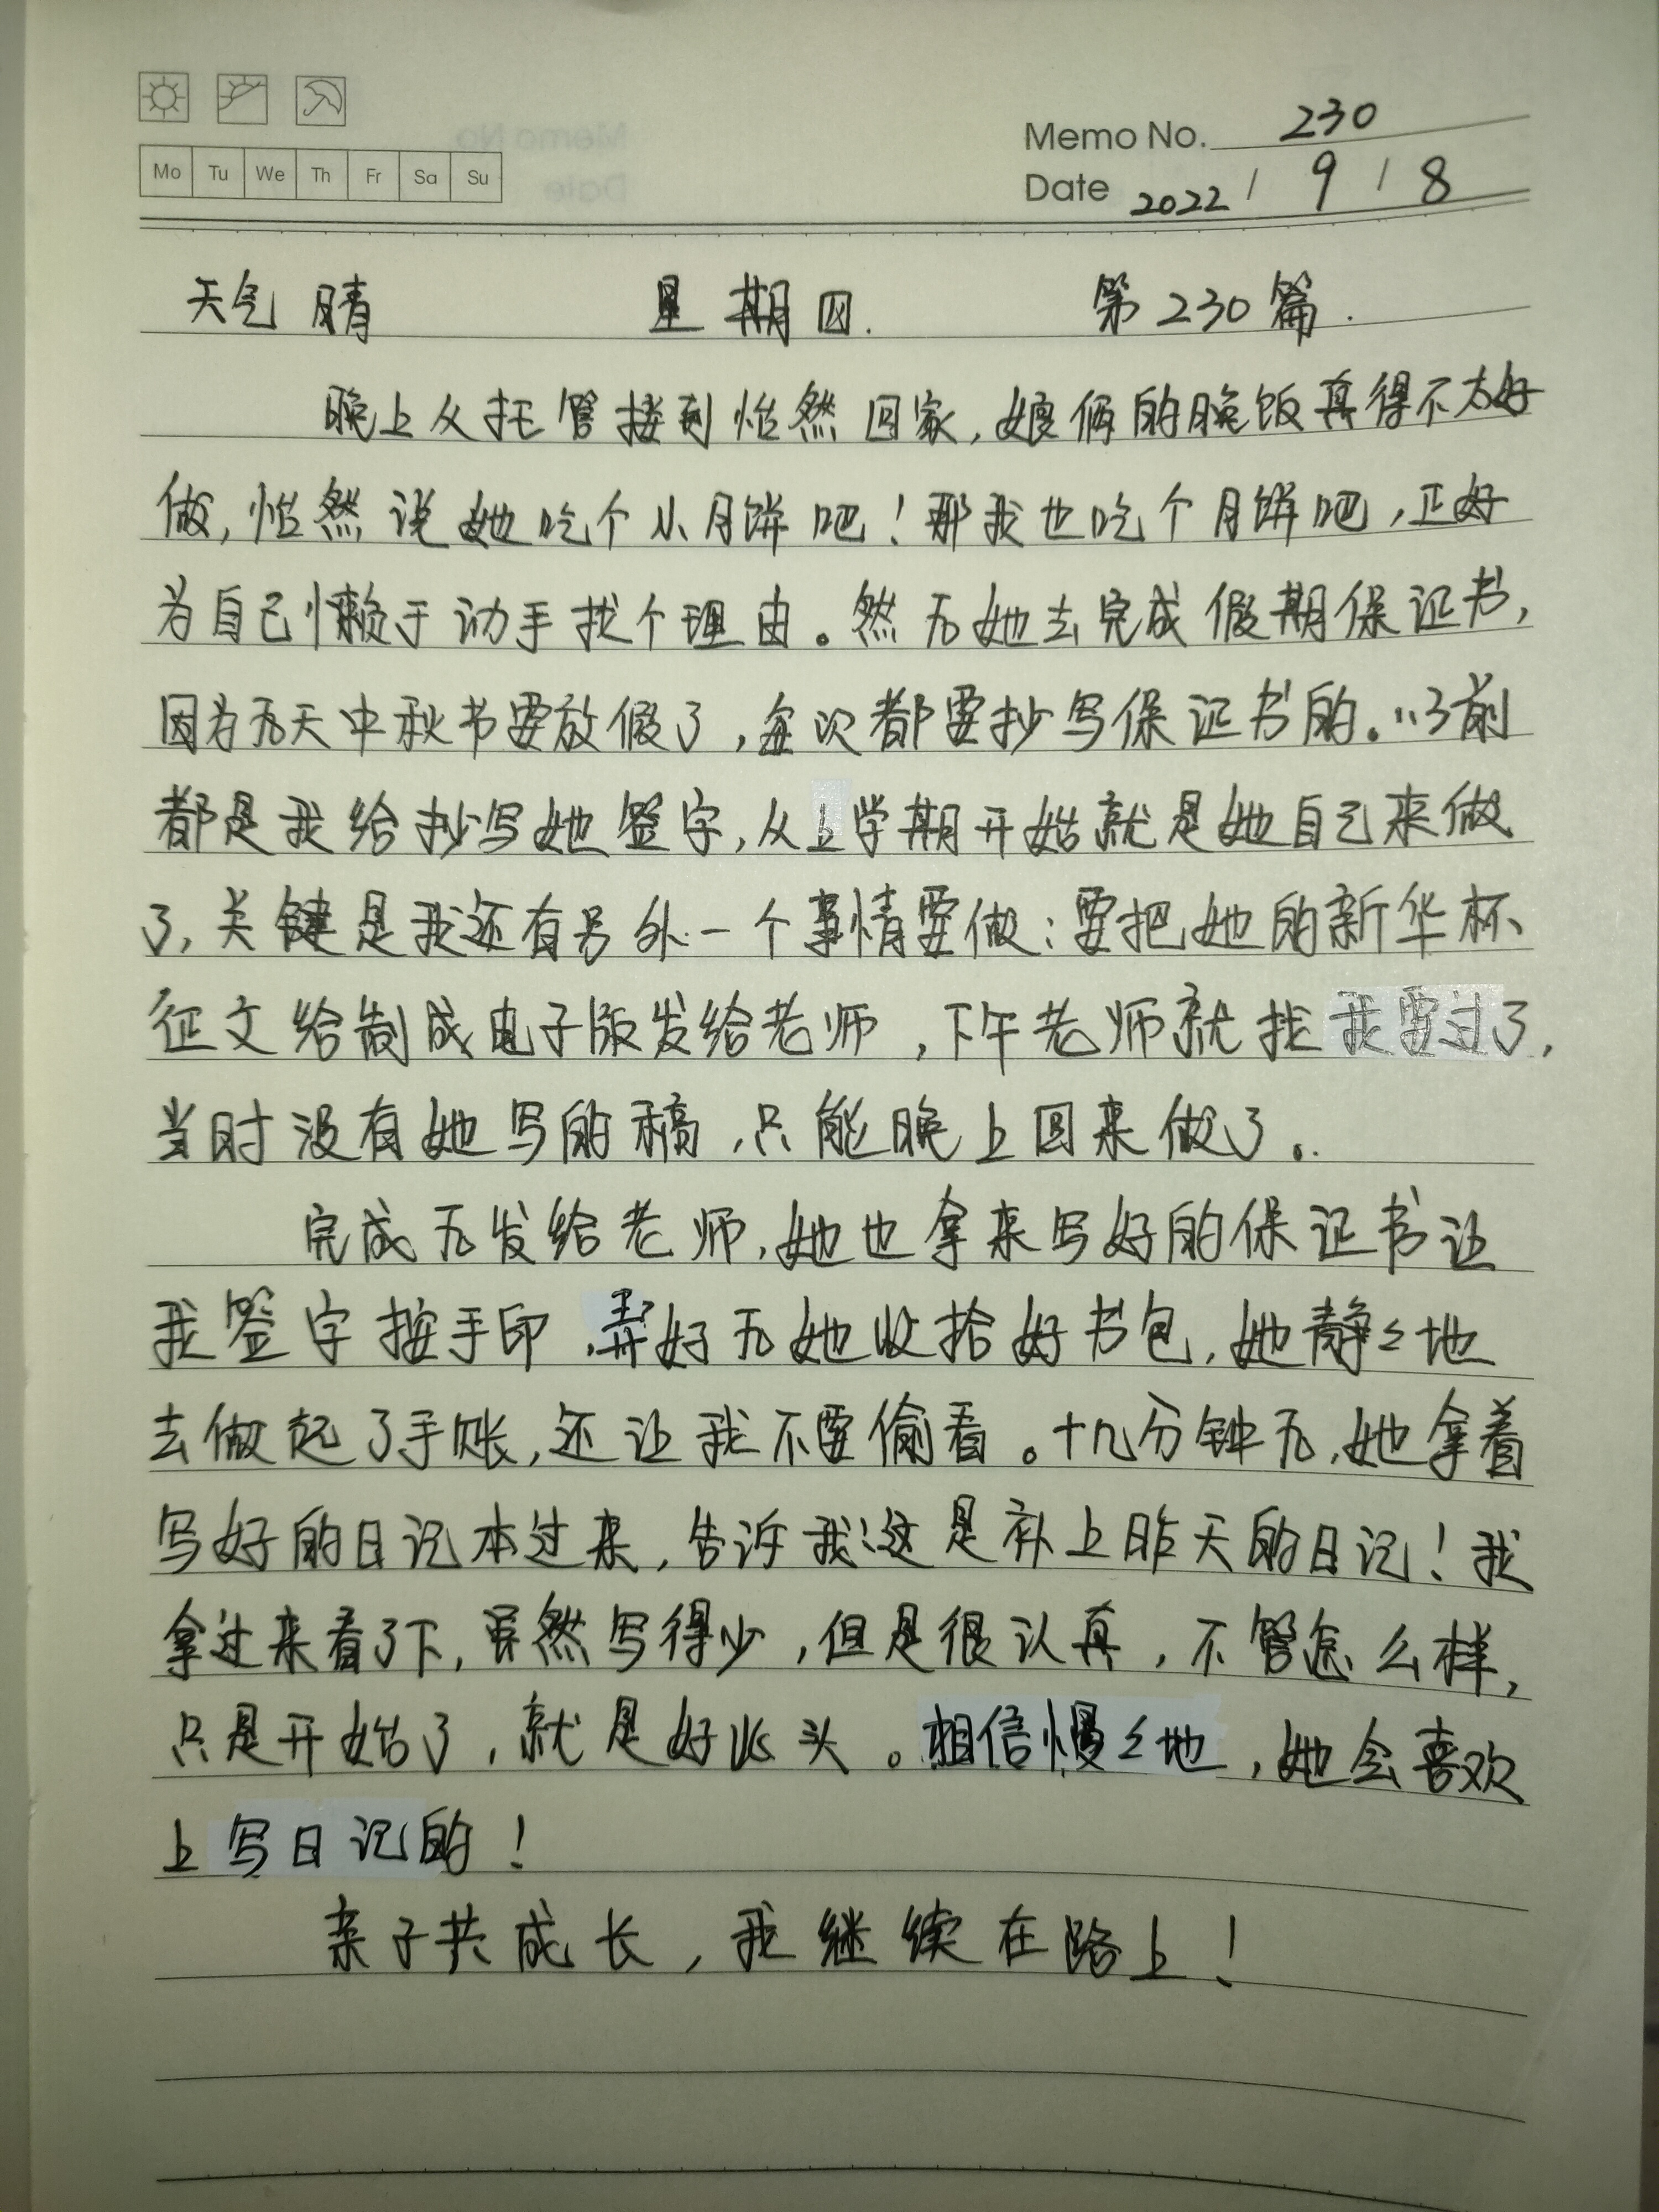 Memo No. 230
Mo Tu We Th Fr Sa Su
Date 2022 / 9 / 8
天气 晴 星期四. 第230篇.
晚上从托管接到怡然回家,娘俩的晚饭真得不太好
做,怡然说她吃个小月饼吧!那我也吃个月饼吧,正好
为自己懒于动手找个理由。然后她去完成假期保证书,
因为后天中秋节要放假了,每次都要抄写保证书的。以前
都是我给抄写她签字,从上学期开始就是她自己来做
了,关键是我还有另外一个事情要做:要把她的新华杯
征文给制成电子版发给老师,下午老师就找我要过了,
当时没有她写的稿,只能晚上回来做了。
完成后发给老师,她也拿来写好的保证书让
我签字按手印,弄好后她收拾好书包,她静々地
去做起了手账,还让我不要偷看。十几分钟后,她拿着
写好的日记本过来,告诉我:这是补上昨天的日记!我
拿过来看了下,虽然写得少,但是很认真,不管怎么样,
只是开始了,就是好兆头。相信慢々地,她会喜欢
上写日记的!
亲子共成长,我继续在路上!